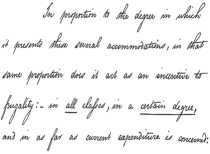 In proportion to the degree in which
it presents these several accommodations, in that
same proportion does it act as an incentive to
frugality:– in all classes, in a certain degree,
and in as far as current expenditure is concerned: